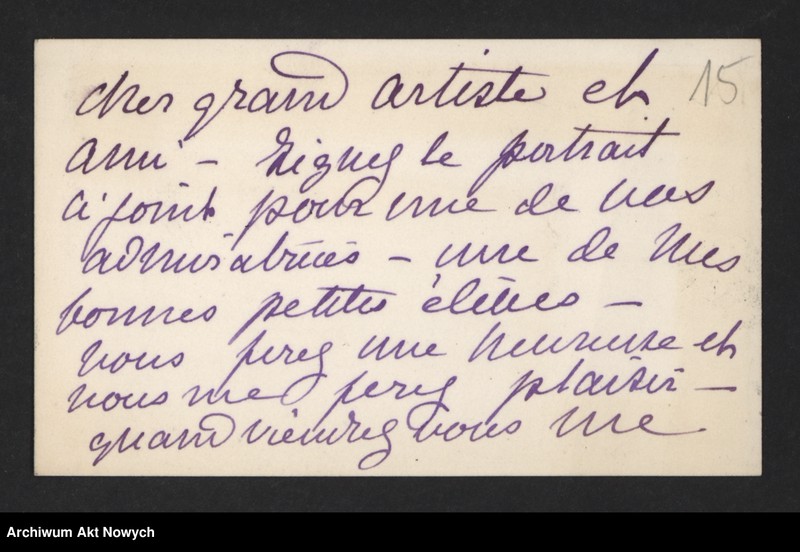 cher grand artiste et 15
ami - signez le portrait
ci joint pour une de vos
admiratrices - une de mes
bonnes petites élèves -
vous ferez une heureuse et
vous me ferez plaisir -
quand viendrez vous me
Archiwum Akt Nowych